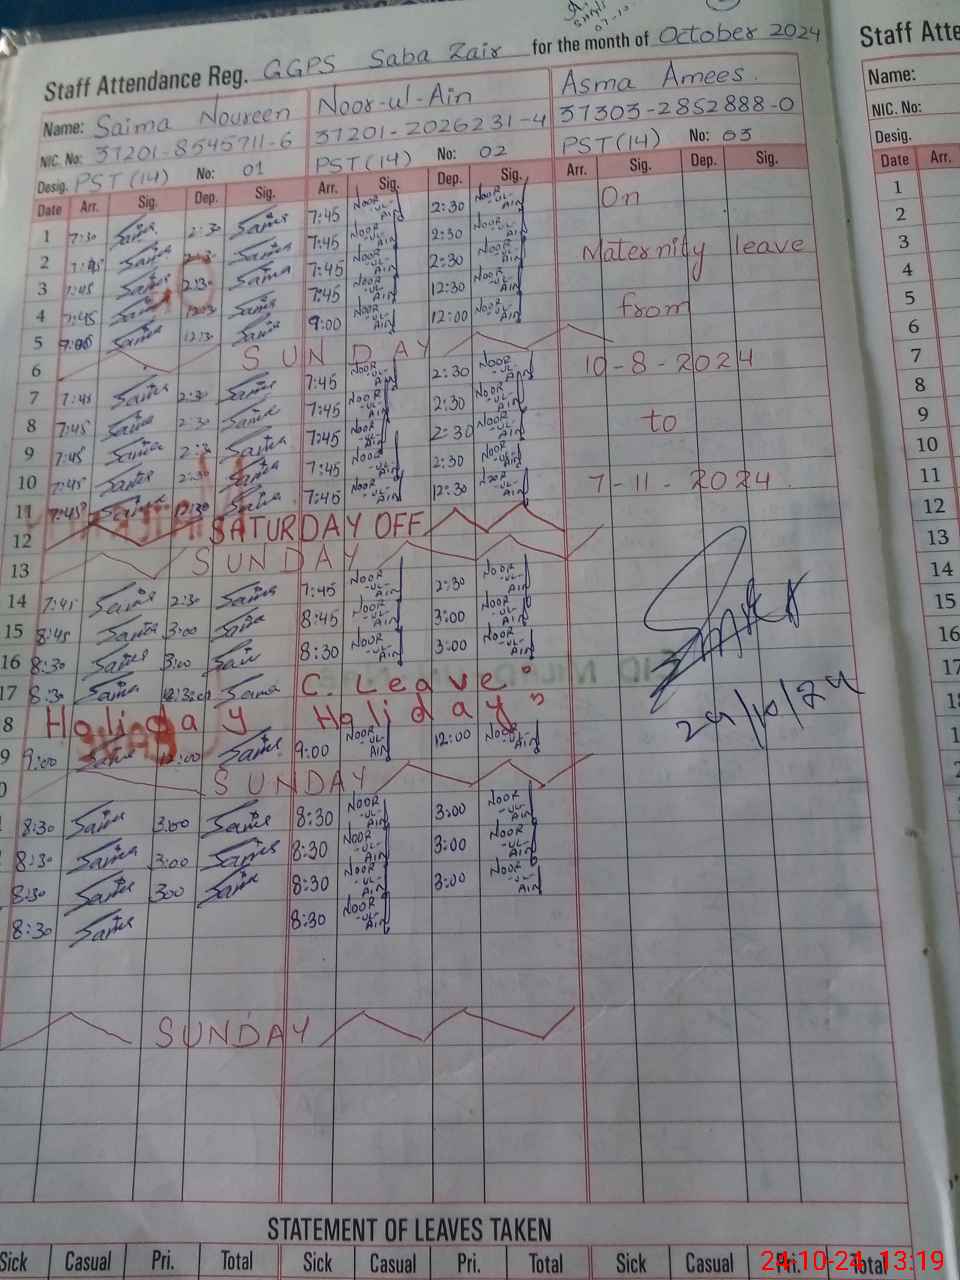 Staff Attendance Reg. GGPS Saba Zair for the month of October 2024
Staff Atte
Name: Saima Noureen Noor-ul-Ain Asma Amees.
Name:
NIC. No: 37201-8545711-6 37201-2026231-4 37303-2852888-0
NIC. No:
Desig. PST(14) No: 01 PST(14) No: 02 PST(14) No: 03
Desig.
Date Arr. Sig. Dep. Sig. Arr. Sig. Dep. Sig. Arr. Sig. Dep. Sig.
Date Arr.
1 7:30 Saima 2:30 Saima 7:45 NOOR-UL-AIN 2:30 NOOR-UL-AIN On
2 7:45 Saima Saima 7:45 NOOR-UL-AIN 2:30 NOOR-UL-AIN
3 7:45 Saima 2:30 Saima 7:45 NOOR-UL-AIN 2:30 NOOR-UL-AIN Maternity leave
4 7:45 Saima Saima 7:45 NOOR-UL-AIN 12:30 NOOR-UL-AIN
5 9:00 Saima Saima 9:00 NOOR-UL-AIN 12:00 NOOR-UL-AIN from
6 SUNDAY
7 7:45 Saima 2:30 Saima 7:45 NOOR-UL-AIN 2:30 NOOR-UL-AIN 10-8-2024
8 7:45 Saima 2:30 Saima 7:45 NOOR-UL-AIN 2:30 NOOR-UL-AIN
9 7:45 Saima 2:30 Saima 7:45 NOOR-UL-AIN 2:30 NOOR-UL-AIN to
10 7:45 Saima 2:30 Saima 7:45 NOOR-UL-AIN 2:30 NOOR-UL-AIN
11 7:45 Saima 12:30 Saima 7:45 NOOR-UL-AIN 12:30 NOOR-UL-AIN 7-11-2024
12 SATURDAY OFF
13 SUNDAY
14 7:45 Saima 2:30 Saima 7:45 NOOR-UL-AIN 2:30 NOOR-UL-AIN
15 8:45 Saima 3:00 Saima 8:45 NOOR-UL-AIN 3:00 NOOR-UL-AIN
16 8:30 Saima 3:00 Saima 8:30 NOOR-UL-AIN 3:00 NOOR-UL-AIN
17 8:30 Saima Saima C. Leave"
8 Holiday Holiday"
24/10/24
9 9:00 Saima 12:00 Saima 9:00 NOOR-UL-AIN 12:00 NOOR-UL-AIN
0 SUNDAY
8:30 Saima 3:00 Saima 8:30 NOOR-UL-AIN 3:00 NOOR-UL-AIN
8:30 Saima 3:00 Saima 8:30 NOOR-UL-AIN 3:00 NOOR-UL-AIN
8:30 Saima 300 Saima 8:30 NOOR-UL-AIN 3:00 NOOR-UL-AIN
8:30 Saima 8:30 NOOR-UL-AIN
SUNDAY
1
2
3
4
5
6
7
8
9
10
11
12
13
14
15
16
17
18
STATEMENT OF LEAVES TAKEN
Sick Casual Pri. Total Sick Casual Pri. Total Sick Casual Pri. Total
24-10-24 13:19